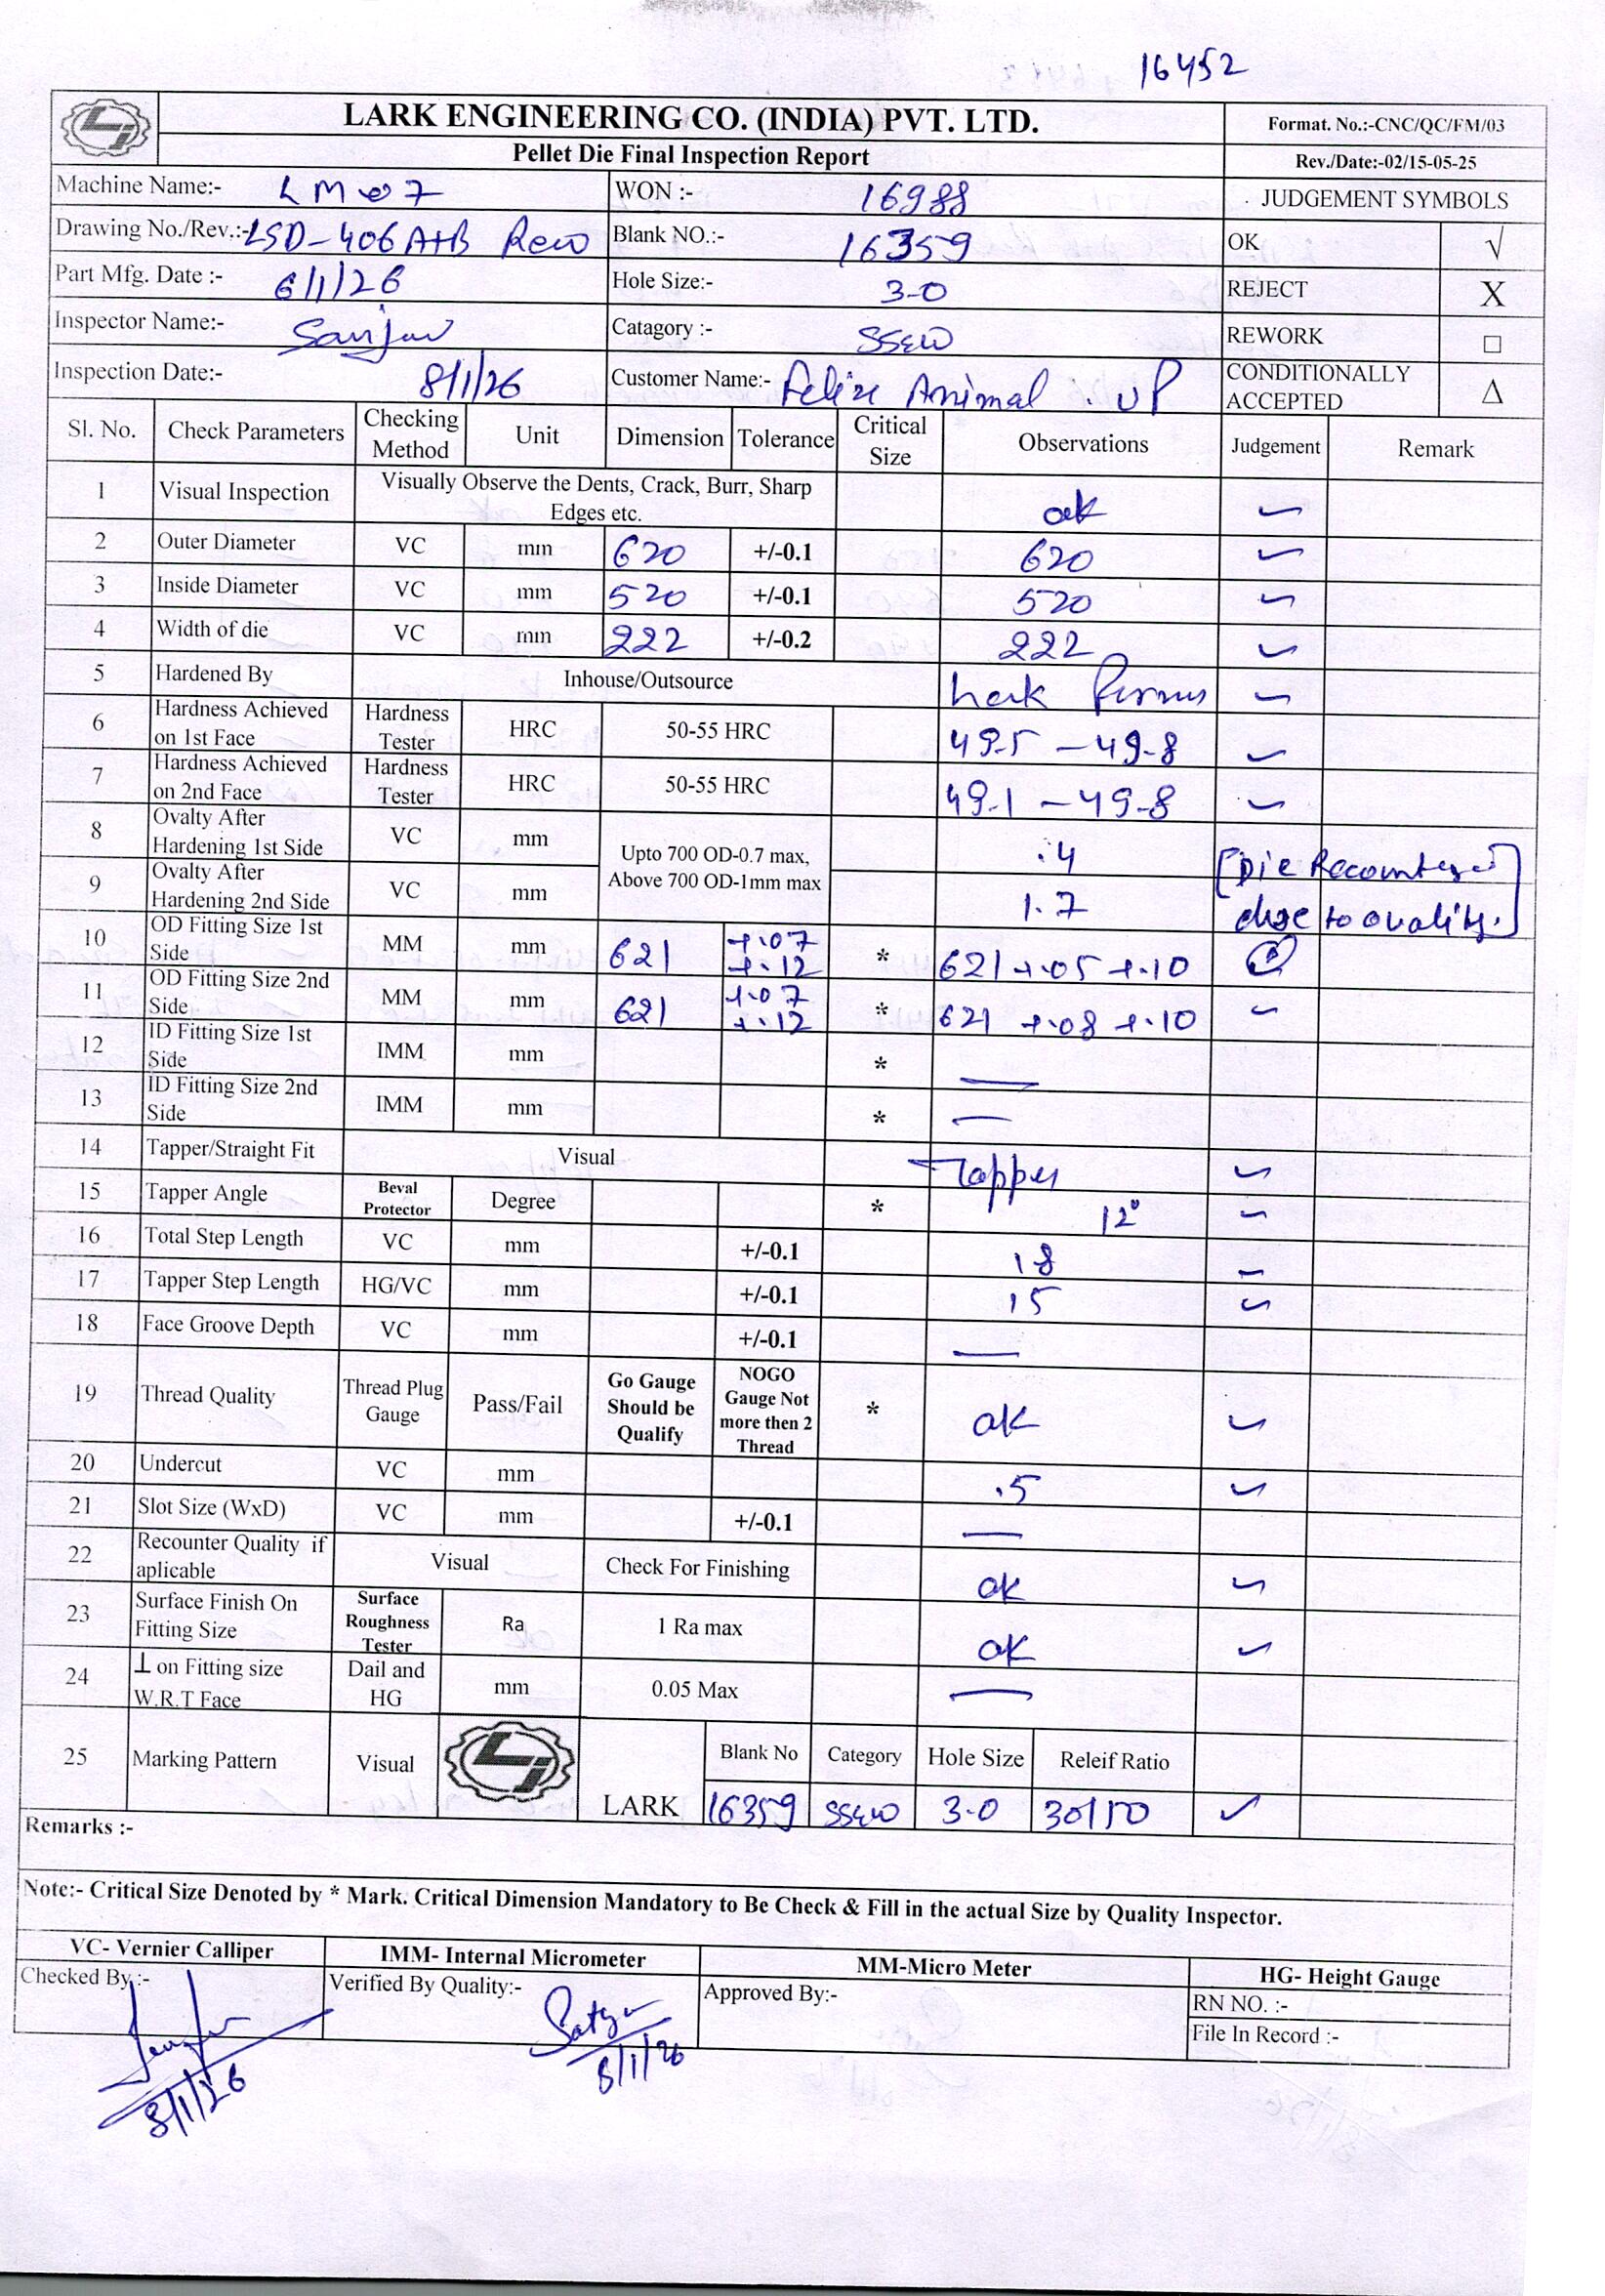 16452
LARK ENGINEERING CO. (INDIA) PVT. LTD.
Format. No.:-CNC/QC/FM/03
Pellet Die Final Inspection Report
Rev./Date:-02/15-05-25
Machine Name:- LM07 WON :- 16988 JUDGEMENT SYMBOLS
Drawing No./Rev.:- LSD-406 A+B Blank NO.:- 16359 OK √
Part Mfg. Date :- 6/1/26 Hole Size:- 3-0 REJECT X
Inspector Name:- Catagory :- REWORK □
Inspection Date:- 8/1/26 Customer Name:- Animal . UP CONDITIONALLY ACCEPTED Δ
Sl. No. Check Parameters Checking Method Unit Dimension Tolerance Critical Size Observations Judgement Remark
1 Visual Inspection Visually Observe the Dents, Crack, Burr, Sharp Edges etc. ok
2 Outer Diameter VC mm 620 +/-0.1 620
3 Inside Diameter VC mm 520 +/-0.1 520
4 Width of die VC mm 222 +/-0.2 222
5 Hardened By Inhouse/Outsource
6 Hardness Achieved on 1st Face Hardness Tester HRC 50-55 HRC 49-5 - 49-8
7 Hardness Achieved on 2nd Face Hardness Tester HRC 50-55 HRC 49-1 - 49-8
8 Ovalty After Hardening 1st Side VC mm Upto 700 OD-0.7 max, Above 700 OD-1mm max .4 [Die
9 Ovalty After Hardening 2nd Side VC mm 1.7 to ovality.]
10 OD Fitting Size 1st Side MM mm 621 +.07 +.12 * 621 +.05 +.10
11 OD Fitting Size 2nd Side MM mm 621 +.07 +.12 * 621 +.08 +.10
12 ID Fitting Size 1st Side IMM mm * —
13 ID Fitting Size 2nd Side IMM mm * —
14 Tapper/Straight Fit Visual Tapper
15 Tapper Angle Beval Protector Degree * 12°
16 Total Step Length VC mm +/-0.1 18
17 Tapper Step Length HG/VC mm +/-0.1 15
18 Face Groove Depth VC mm +/-0.1 —
19 Thread Quality Thread Plug Gauge Pass/Fail Go Gauge Should be Qualify NOGO Gauge Not more then 2 Thread * ok
20 Undercut VC mm .5
21 Slot Size (WxD) VC mm +/-0.1 —
22 Recounter Quality if aplicable Visual Check For Finishing ok
23 Surface Finish On Fitting Size Surface Roughness Tester Ra 1 Ra max ok
24 ⊥ on Fitting size W.R.T Face Dail and HG mm 0.05 Max —
25 Marking Pattern Visual LARK Blank No Category Hole Size Releif Ratio
16359 3-0
Remarks :-
Note:- Critical Size Denoted by * Mark. Critical Dimension Mandatory to Be Check & Fill in the actual Size by Quality Inspector.
VC- Vernier Calliper IMM- Internal Micrometer MM-Micro Meter HG- Height Gauge
Checked By :- Verified By Quality:- Approved By:- RN NO. :-
File In Record :-
8/1/26 8/1/26